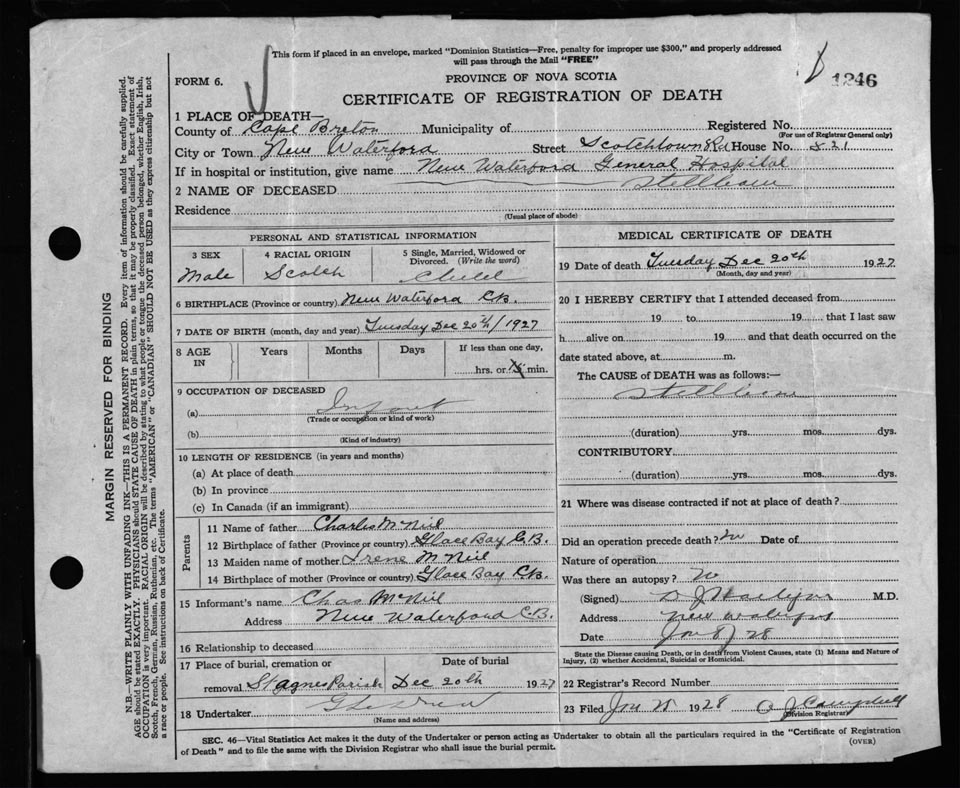 This form if placed in an envelope, marked "Dominion Statistics—Free, penalty for improper use $300," and properly addressed
will pass through the Mail "FREE"
FORM 6.
PROVINCE OF NOVA SCOTIA
1246
CERTIFICATE OF REGISTRATION OF DEATH
1 PLACE OF DEATH—
County of Cape Breton Municipality of Registered No.
(For use of Registrar General only)
City or Town New Waterford Street Scotchtown Rd House No. 821
If in hospital or institution, give name New Waterford General Hospital
2 NAME OF DECEASED Stillborn
Residence
(Usual place of abode)
PERSONAL AND STATISTICAL INFORMATION
3 SEX 4 RACIAL ORIGIN 5 Single, Married, Widowed or
Divorced. (Write the word)
Male Scotch Child
6 BIRTHPLACE (Province or country) New Waterford C.B.
7 DATE OF BIRTH (month, day and year) Tuesday Dec 20th/1927
8 AGE IN Years Months Days If less than one day,
hrs. or min.
9 OCCUPATION OF DECEASED
(a) Infant
(Trade or occupation or kind of work)
(b)
(Kind of industry)
10 LENGTH OF RESIDENCE (in years and months)
(a) At place of death
(b) In province
(c) In Canada (if an immigrant)
Parents
11 Name of father Charles McNeil
12 Birthplace of father (Province or country) Glace Bay C.B.
13 Maiden name of mother Irene McNeil
14 Birthplace of mother (Province or country) Glace Bay C.B.
15 Informant's name Chas McNeil
Address New Waterford C.B.
16 Relationship to deceased
17 Place of burial, cremation or Date of burial
removal St Agnes Parish Dec 20th 1927
18 Undertaker
(Name and address)
MEDICAL CERTIFICATE OF DEATH
19 Date of death Tuesday Dec 20th 1927
(Month, day and year)
20 I HEREBY CERTIFY that I attended deceased from
19 to 19 that I last saw
h alive on 19 and that death occurred on the
date stated above, at m.
The CAUSE of DEATH was as follows:—
Stillborn
(duration) yrs. mos. dys.
CONTRIBUTORY
(duration) yrs. mos. dys.
21 Where was disease contracted if not at place of death?
Did an operation precede death? No Date of
Nature of operation
Was there an autopsy? No
(Signed) M.D.
Address New Waterford
Date Jan 8/28
State the Disease causing Death, or in death from Violent Causes, state (1) Means and Nature of
Injury, (2) whether Accidental, Suicidal or Homicidal.
22 Registrar's Record Number
23 Filed Jan 28 1928 J Campbell
Division Registrar
SEC. 46—Vital Statistics Act makes it the duty of the Undertaker or person acting as Undertaker to obtain all the particulars required in the "Certificate of Registration
of Death" and to file the same with the Division Registrar who shall issue the burial permit.
(OVER)
MARGIN RESERVED FOR BINDING
N.B.—WRITE PLAINLY WITH UNFADING INK—THIS IS A PERMANENT RECORD. Every item of information should be carefully supplied.
AGE should be stated EXACTLY. PHYSICIANS should STATE CAUSE OF DEATH in plain terms, so that it may be properly classified. Exact statement of
OCCUPATION is very important. RACIAL ORIGIN will be described by stating to what people or tongue the deceased person belonged, whether English, Irish,
Scotch, French, German, Russian, Ruthenian, etc. The terms "AMERICAN" or "CANADIAN" SHOULD NOT BE USED as they express citizenship but not
a race or people. See instructions on back of Certificate.